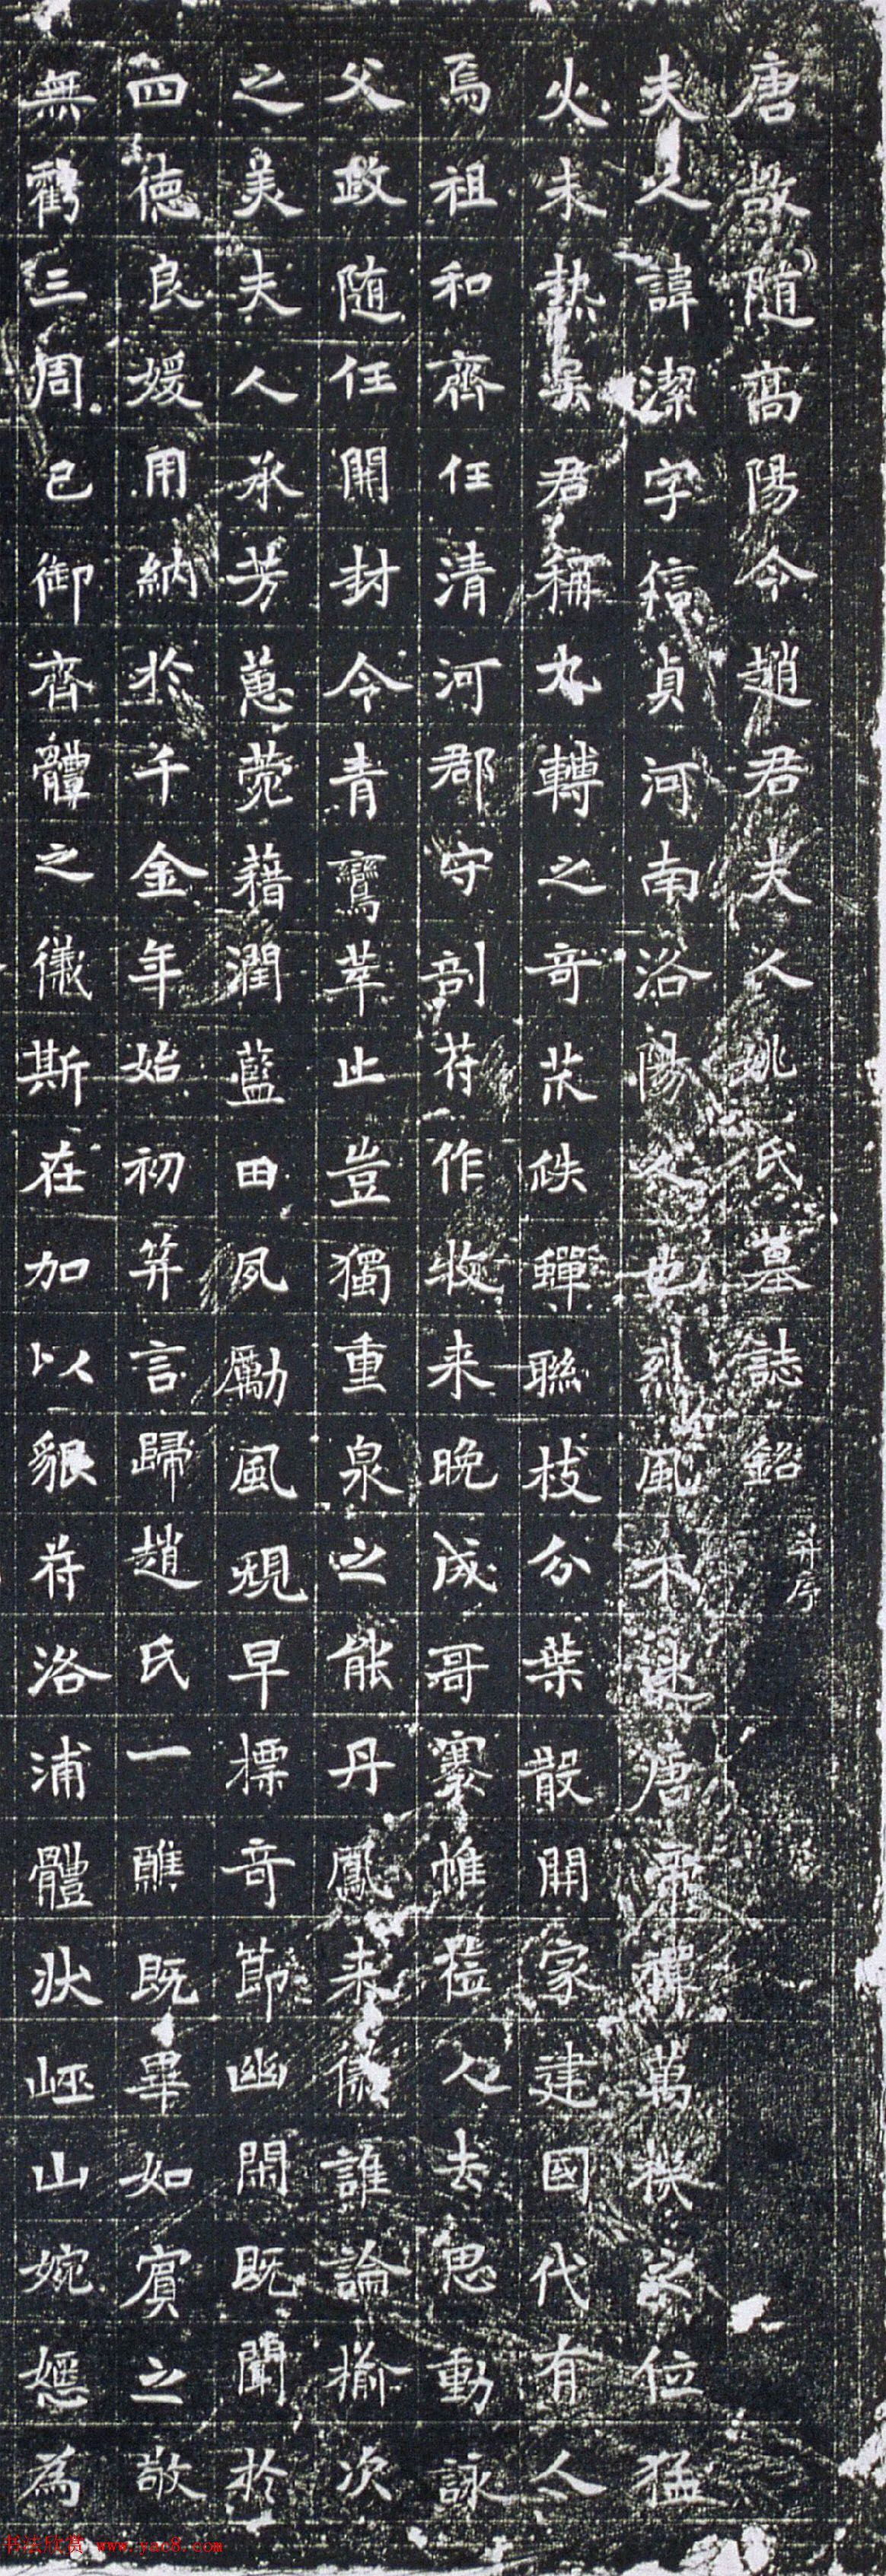 唐故随高陽令趙君夫人姚氏墓誌銘 并序
夫人諱潔字貞河南洛陽人也烈風不迷唐帝禪萬機之位猛
火未熱吳君稱九轉之奇瓞蟬聯枝分葉散開家建國代有人
焉祖和齊任清河郡守剖苻作牧来晚成哥褰帷人去思動詠
父政随任開封令青鸞萃止豈獨重泉之能丹鳳来儀誰論揄次
之美夫人承芳蕙菀藉潤藍田夙勵風規早摽奇節幽閑既聞於
四德良媛用納於千金年始初笄言歸趙氏一醮既畢如賓之敬
無虧三周已御齊體之儀斯在加以貌苻洛浦體状巫山婉嫕為
书法欣赏 www.yac8.com